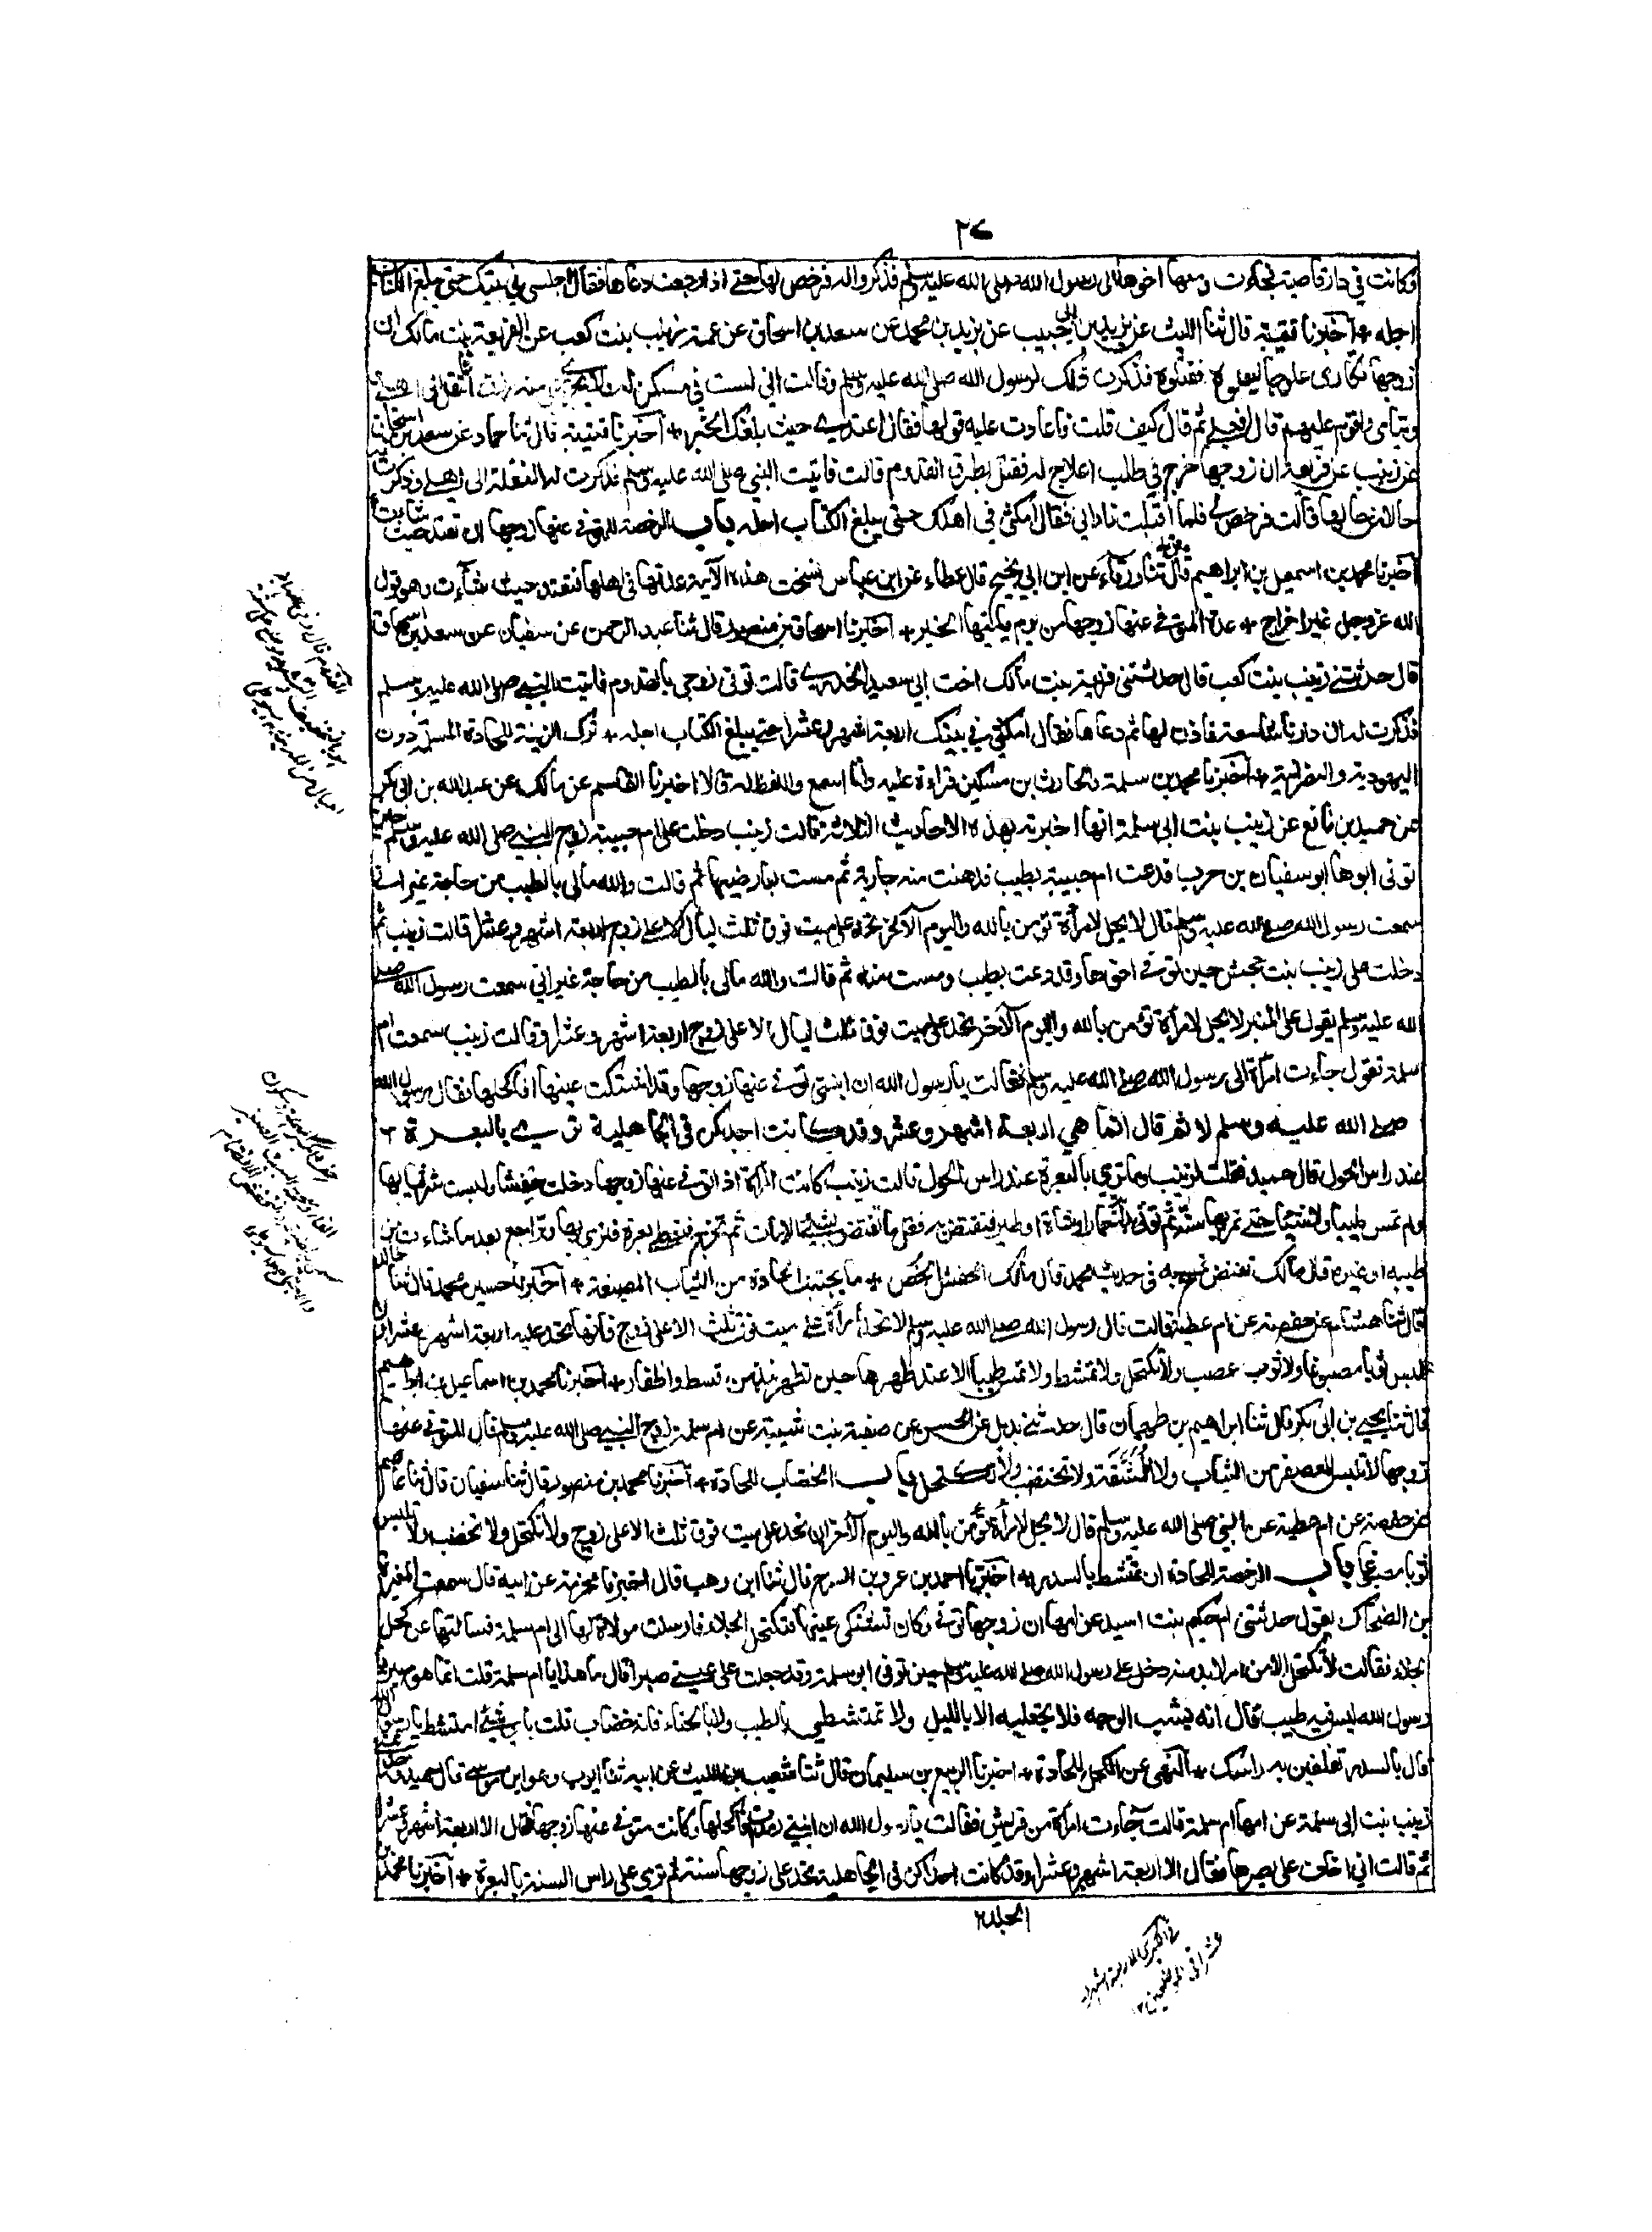 ٢٧
وكانت في دار قاصية فجاءت ومعها اخوها الى رسول الله صلى الله عليه وسلم فذكروا له فرخص لها حتى اذا رجعت دعاها فقال اجلسي في بيتك حتى يبلغ الكتاب
اجله + اخبرنا قتيبة قال ثنا الليث عن يزيد بن ابي حبيب عن يزيد بن محمد عن سعد بن اسحاق عن عمته زينب بنت كعب عن الفريعة بنت مالك ان
زوجها تكارى علوجا ليعملوا له فقتلوه فذكرت ذلك لرسول الله صلى الله عليه وسلم وقالت اني لست في مسكن له ولا يجري منه رزق انتقل الى اهلي
ويتاماي واقوم عليهم قال افعلي ثم قال كيف قلت فاعادت عليه قولها فقال اعتدي حيث بلغك الخبر + اخبرنا قتيبة قال ثنا حماد عن سعد بن اسحاق
عن زينب عن فريعة ان زوجها خرج في طلب اعلاج له فقتل بطرق القدوم قالت فاتيت النبي صلى الله عليه وسلم فذكرت له النقلة الى اهلي وذكرت له
حالا من حالها قالت فرخص لي فلما اقبلت ناداني فقال امكثي في اهلك حتى يبلغ الكتاب اجله باب الرخصة للمتوفى عنها زوجها ان تعتد حيث شاءت
اخبرنا محمد بن اسمعيل بن ابراهيم قال ثنا يزيد ثنا ورقاء عن ابن ابي نجيح قال عطاء عن ابن عباس نسخت هذه الآية عدتها في اهلها فتعتد حيث شاءت وهو قول
الله عز وجل غير اخراج + عدة المتوفى عنها زوجها من يوم ياتيها الخبر + اخبرنا اسحاق بن منصور قال ثنا عبد الرحمن عن سفيان عن سعد بن اسحاق
قال حدثتني زينب بنت كعب قال حدثتني فريعة بنت مالك اخت ابي سعيد الخدري قالت توفي زوجي بالقدوم فاتيت النبي صلى الله عليه وسلم
فذكرت له ان دارنا شاسعة فاذن لها ثم دعاها فقال امكثي في بيتك اربعة اشهر وعشرا حتى يبلغ الكتاب اجله + ترك الزينة للحادة المسلمة دون
اليهودية والنصرانية + اخبرنا محمد بن سلمة والحارث بن مسكين قراءة عليه وانا اسمع واللفظ له قالا اخبرنا القاسم عن مالك عن عبد الله بن ابي بكر
عن حميد بن نافع عن زينب بنت ابي سلمة انها اخبرته بهذه الاحاديث الثلاثة قالت زينب دخلت على ام حبيبة زوج النبي صلى الله عليه وسلم حين
توفي ابوها ابو سفيان بن حرب فدعت ام حبيبة بطيب فدهنت منه جارية ثم مست بعارضيها ثم قالت والله مالي بالطيب من حاجة غير اني
سمعت رسول الله صلى الله عليه وسلم قال لا يحل لامرأة تؤمن بالله واليوم الآخر تحد على ميت فوق ثلث ليال الا على زوج اربعة اشهر وعشرا قالت زينب ثم
دخلت على زينب بنت جحش حين توفي اخوها وقد دعت بطيب ومست منه ثم قالت والله مالي بالطيب من حاجة غير اني سمعت رسول الله صلى
الله عليه وسلم يقول على المنبر لا يحل لامرأة تؤمن بالله واليوم الآخر تحد على ميت فوق ثلث ليال الا على زوج اربعة اشهر وعشرا وقالت زينب سمعت ام
سلمة تقول جاءت امرأة الى رسول الله صلى الله عليه وسلم فقالت يا رسول الله ان ابنتي توفي عنها زوجها وقد اشتكت عينها افاكحلها فقال رسول الله
صلى الله عليه وسلم لا ثم قال انما هي اربعة اشهر وعشر وقد كانت احديكن في الجاهلية ترمي بالبعرة
عند راس الحول قال حميد فقلت لزينب وما ترمي بالبعرة عند راس الحول قالت زينب كانت المرأة اذا توفي عنها زوجها دخلت حفشا ولبست شر ثيابها
ولم تمس طيبا ولا شيئا حتى تمر بها سنة ثم تؤتى بدابة حمار او شاة او طير فتفتض به فقلما تفتض بشيء الا مات ثم تخرج فتعطى بعرة فترمي بها وتراجع بعد ما شاءت من
طيب او غيره قال مالك تفتض تمسح به في حديث محمد قال مالك الحفش الخص + ما يجتنب الحادة من الثياب المصبغة + اخبرنا حسين بن محمد قال ثنا خالد
قال ثنا هشام عن حفصة عن ام عطية قالت قال رسول الله صلى الله عليه وسلم لا تحد امرأة على ميت فوق ثلث الا على زوج فانها تحد عليه اربعة اشهر وعشرا ولا
تلبس ثوبا مصبوغا ولا ثوب عصب ولا تكتحل ولا تمتشط ولا تمس طيبا الا عند طهرها حين تطهر نبذا من قسط واظفار + اخبرنا محمد بن اسماعيل بن ابراهيم
قال ثنا يحيى بن ابي بكر قال ثنا ابراهيم بن طهمان قال حدثني بديل عن الحسن عن صفية بنت شيبة عن ام سلمة زوج النبي صلى الله عليه وسلم قال المتوفى عنها
زوجها لا تلبس المعصفر من الثياب ولا الممشقة ولا تختضب ولا تكتحل باب الخضاب للحادة + اخبرنا محمد بن منصور قال ثنا سفيان قال ثنا عاصم
عن حفصة عن ام عطية عن النبي صلى الله عليه وسلم قال لا يحل لامرأة تؤمن بالله واليوم الآخر ان تحد على ميت فوق ثلث الا على زوج ولا تكتحل ولا تختضب ولا تلبس
ثوبا مصبوغا باب الرخصة للحادة ان تمتشط بالسدر + اخبرنا احمد بن عمرو بن السرح قال ثنا ابن وهب قال اخبرنا مخرمة عن ابيه قال سمعت المغيرة
بن الضحاك يقول حدثتني ام حكيم بنت اسيد عن امها ان زوجها توفي وكان تشتكي عينها فتكتحل الجلاء فارسلت مولاة لها الى ام سلمة فسالتها عن كحل
الجلاء فقالت لا تكتحل الا من امر لا بد منه دخل علي رسول الله صلى الله عليه وسلم حين توفي ابو سلمة وقد جعلت على عيني صبرا قال ما هذا يا ام سلمة قلت انما هو صبر يا
رسول الله ليس فيه طيب قال انه يشب الوجه فلا تجعليه الا بالليل ولا تمتشطي بالطيب ولا بالحناء فانه خضاب قلت باي شيء امتشط يا رسول الله
قال بالسدر تغلفين به راسك + النهي عن الكحل للحادة + اخبرنا الربيع بن سليمان قال ثنا شعيب بن الليث عن ابيه ثنا ايوب وهو ابن موسى قال حميد وحدثتني
زينب بنت ابي سلمة عن امها ام سلمة قالت جاءت امرأة من قريش فقالت يا رسول الله ان ابنتي رمدت افاكحلها وكانت متوفى عنها زوجها فقال الا اربعة اشهر وعشرا
ثم قالت اني اخاف على بصرها فقال الا اربعة اشهر وعشرا وقد كانت احداكن في الجاهلية تحد على زوجها سنة ثم ترمي على راس السنة بالبعرة + اخبرنا محمد بن
الجلد٢